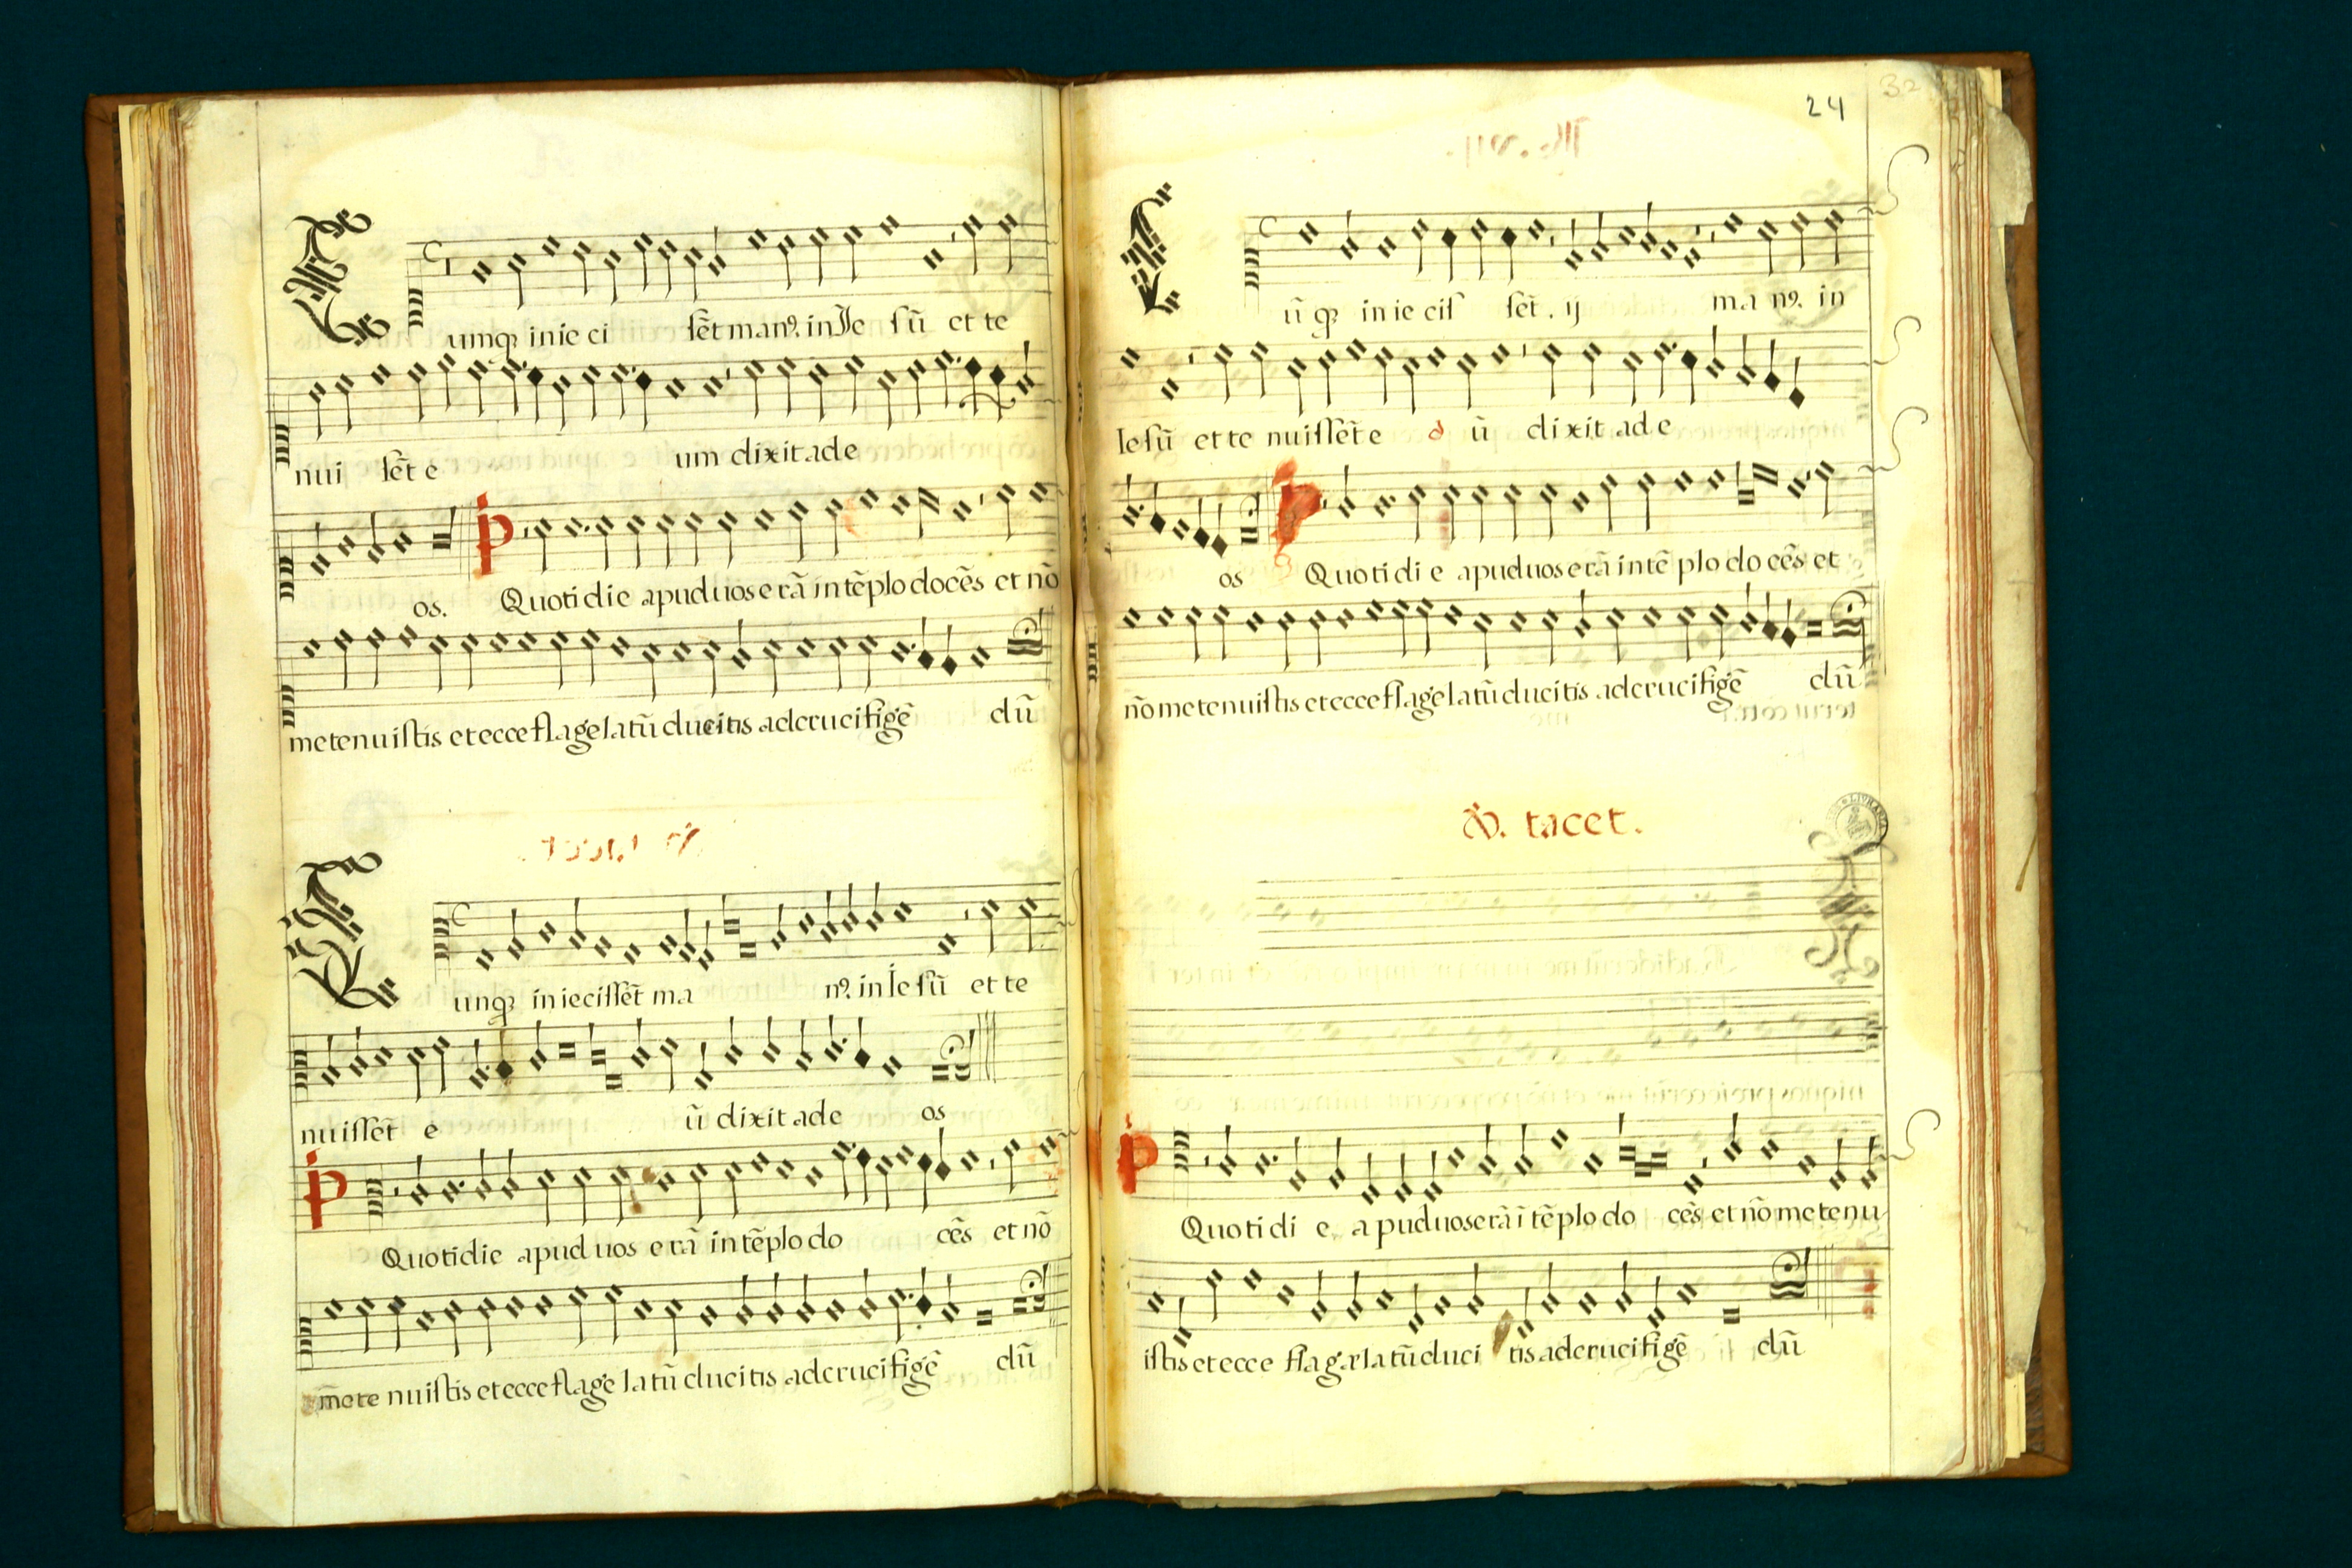 C umqꝫ inie ci ſẽt manꝰ. in Ie ſũ et te
nui ſẽt e um dixit ad e
os. P Quotidie apud uos erã in tẽplo docẽs et nõ
me tenuiſtis et ecce flagelatũ ducitis ad crucifigẽ dũ
C unqꝫ inieciſſẽt ma nꝰ. in Ie ſũ et te
nuiſſẽt e ũ dixit ad e os
P Quotidie apud uos erã in tẽplo do cẽs et nõ
me te nuiſtis et ecce flage latũ ducitis ad crucifigẽ dũ
24
32
C ũ qꝫ in ie ciſ ſẽt. ij ma nꝰ. in
Ieſũ et te nuiſſẽt e ũ dixit ad e
os P Quotidi e apud uos erã in tẽ plo do cẽs et
nõ me tenuiſtis et ecce flagelatũ ducitis ad crucifigẽ dũ
tacet.
P Quoti di e apud uos erã ĩ tẽplo do cẽs et nõ me tenu
iſtis et ecce flagælatũ duci tis ad crucifigẽ dũ